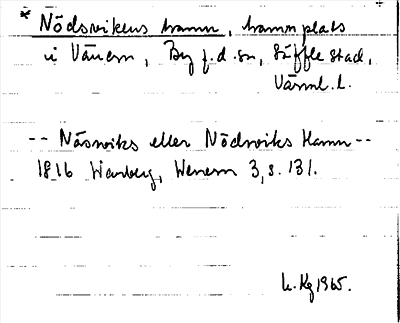 * Nödsvikens hamn, hamnplats
i Vänern, By f.d. sn, Säffle stad,
Värml. l.
-- Näsviks eller Nödsviks Hamn --
1816 Warberg, Wenern 3, s. 131.
L. Kg 1965.